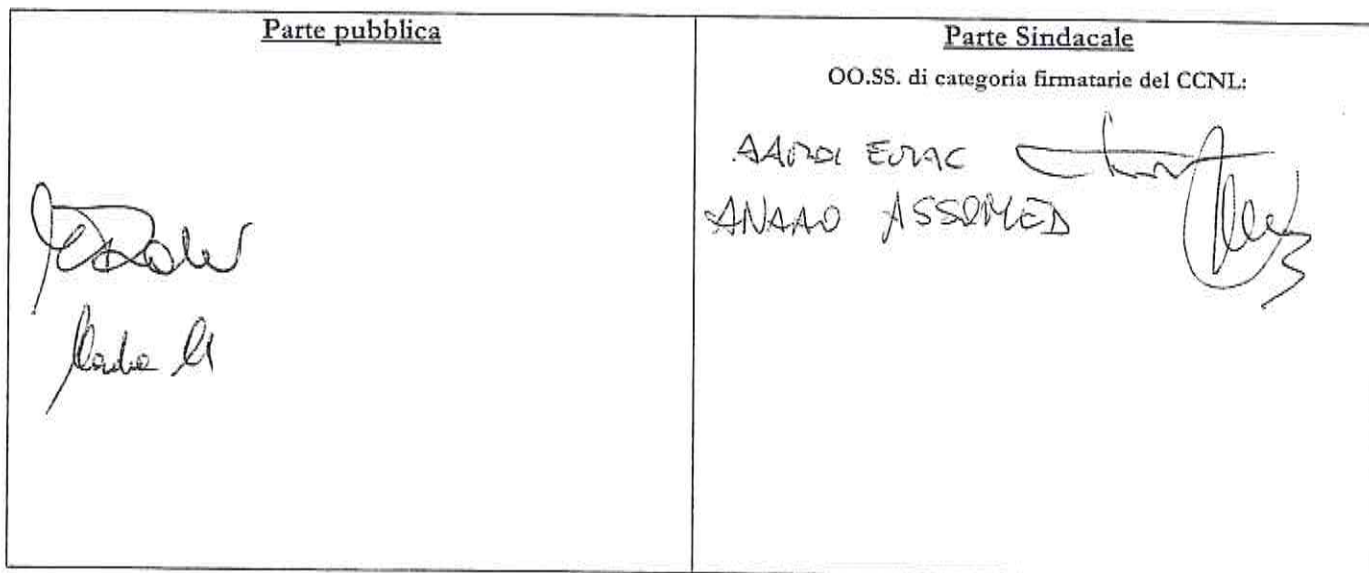 Parte pubblica
Parte Sindacale
OO.SS. di categoria firmatarie del CCNL:
AAROI EMAC
ANAAO ASSOMED